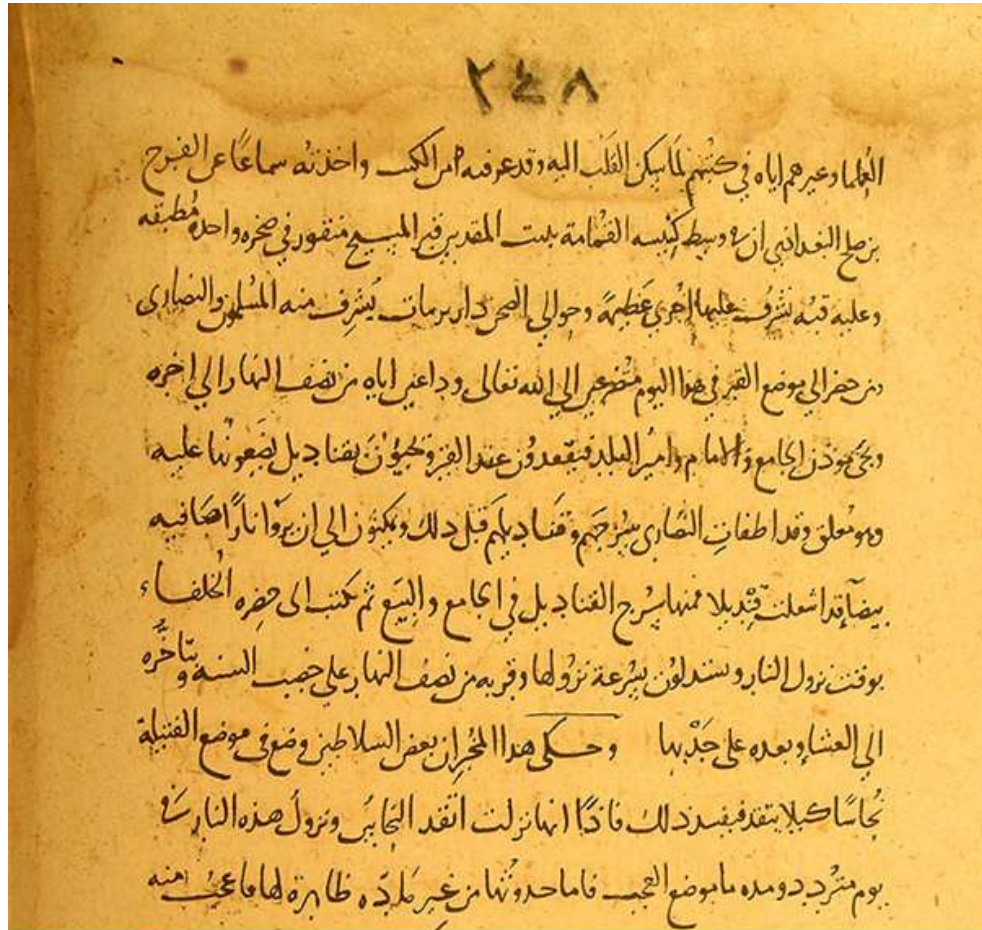 ٢٤٨
العُلما وغيرهم اياه في كتُبهم لمَا سكن القلَب اليه وقد عرفته من الكتب واخذته سماعًا عن الفرج
بن صلح البغدادي ان في وسط كنيسه القُمامة ببيت المقدس قبر المسيح منقور في صخره واحده مُطبقه
وعليه قبه تشرُف عليها اخرى عَظيمةً وحوالي الصخره دار بزمات يُشرف منه المسلمون والنصارى
ومن حضر الى موضع القبر في هذا اليوم متضرعين الى الله تعالى وداعين اياه من نصف النهار الى اخره
ويجى موذن الجامع والامام وامير البلد فيقعدون عند القبر ويجيؤن بقناديل يضَعونها عليه
وهو مُغلق وقد اطفات النصارى سُرجَهم وقناديلَهم قبل ذلك ويمكثون الى ان يرَوا نارًا صَافيه
بيضآء قد اشعلت قنديلا فمنها يسرج القناديل في الجامع والبيَع ثم تكتب الى حضره الخُلفاء
بوقت نزول النار ويستدلون بسُرعة نزُولها وقربه من نصف النهار على خصب السنه وبتاخُّره
الى العشا وبعده على جَدْبها وحكى هدا المخبر ان بعض السلاطين وضع في موضع الفتيلة
نُحاسًا كيلا يتقد فيفسد ذلك فاذًا انها نزلت اتقد النحاس ونزول هذه النار في
يوم متردد ومده ما موضع العجب فاما حدوثها من غير مادّه ظاهرة لها فاعجب منه